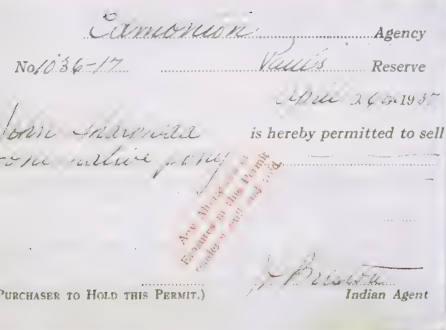 Edmonton Agency
No 1036-17 Paul's Reserve
April 26th 1937
John is hereby permitted to sell
one native pony
Any Alteration or
Erasures in this Permit
renders it null and void.
Indian Agent
(PURCHASER TO HOLD THIS PERMIT.)